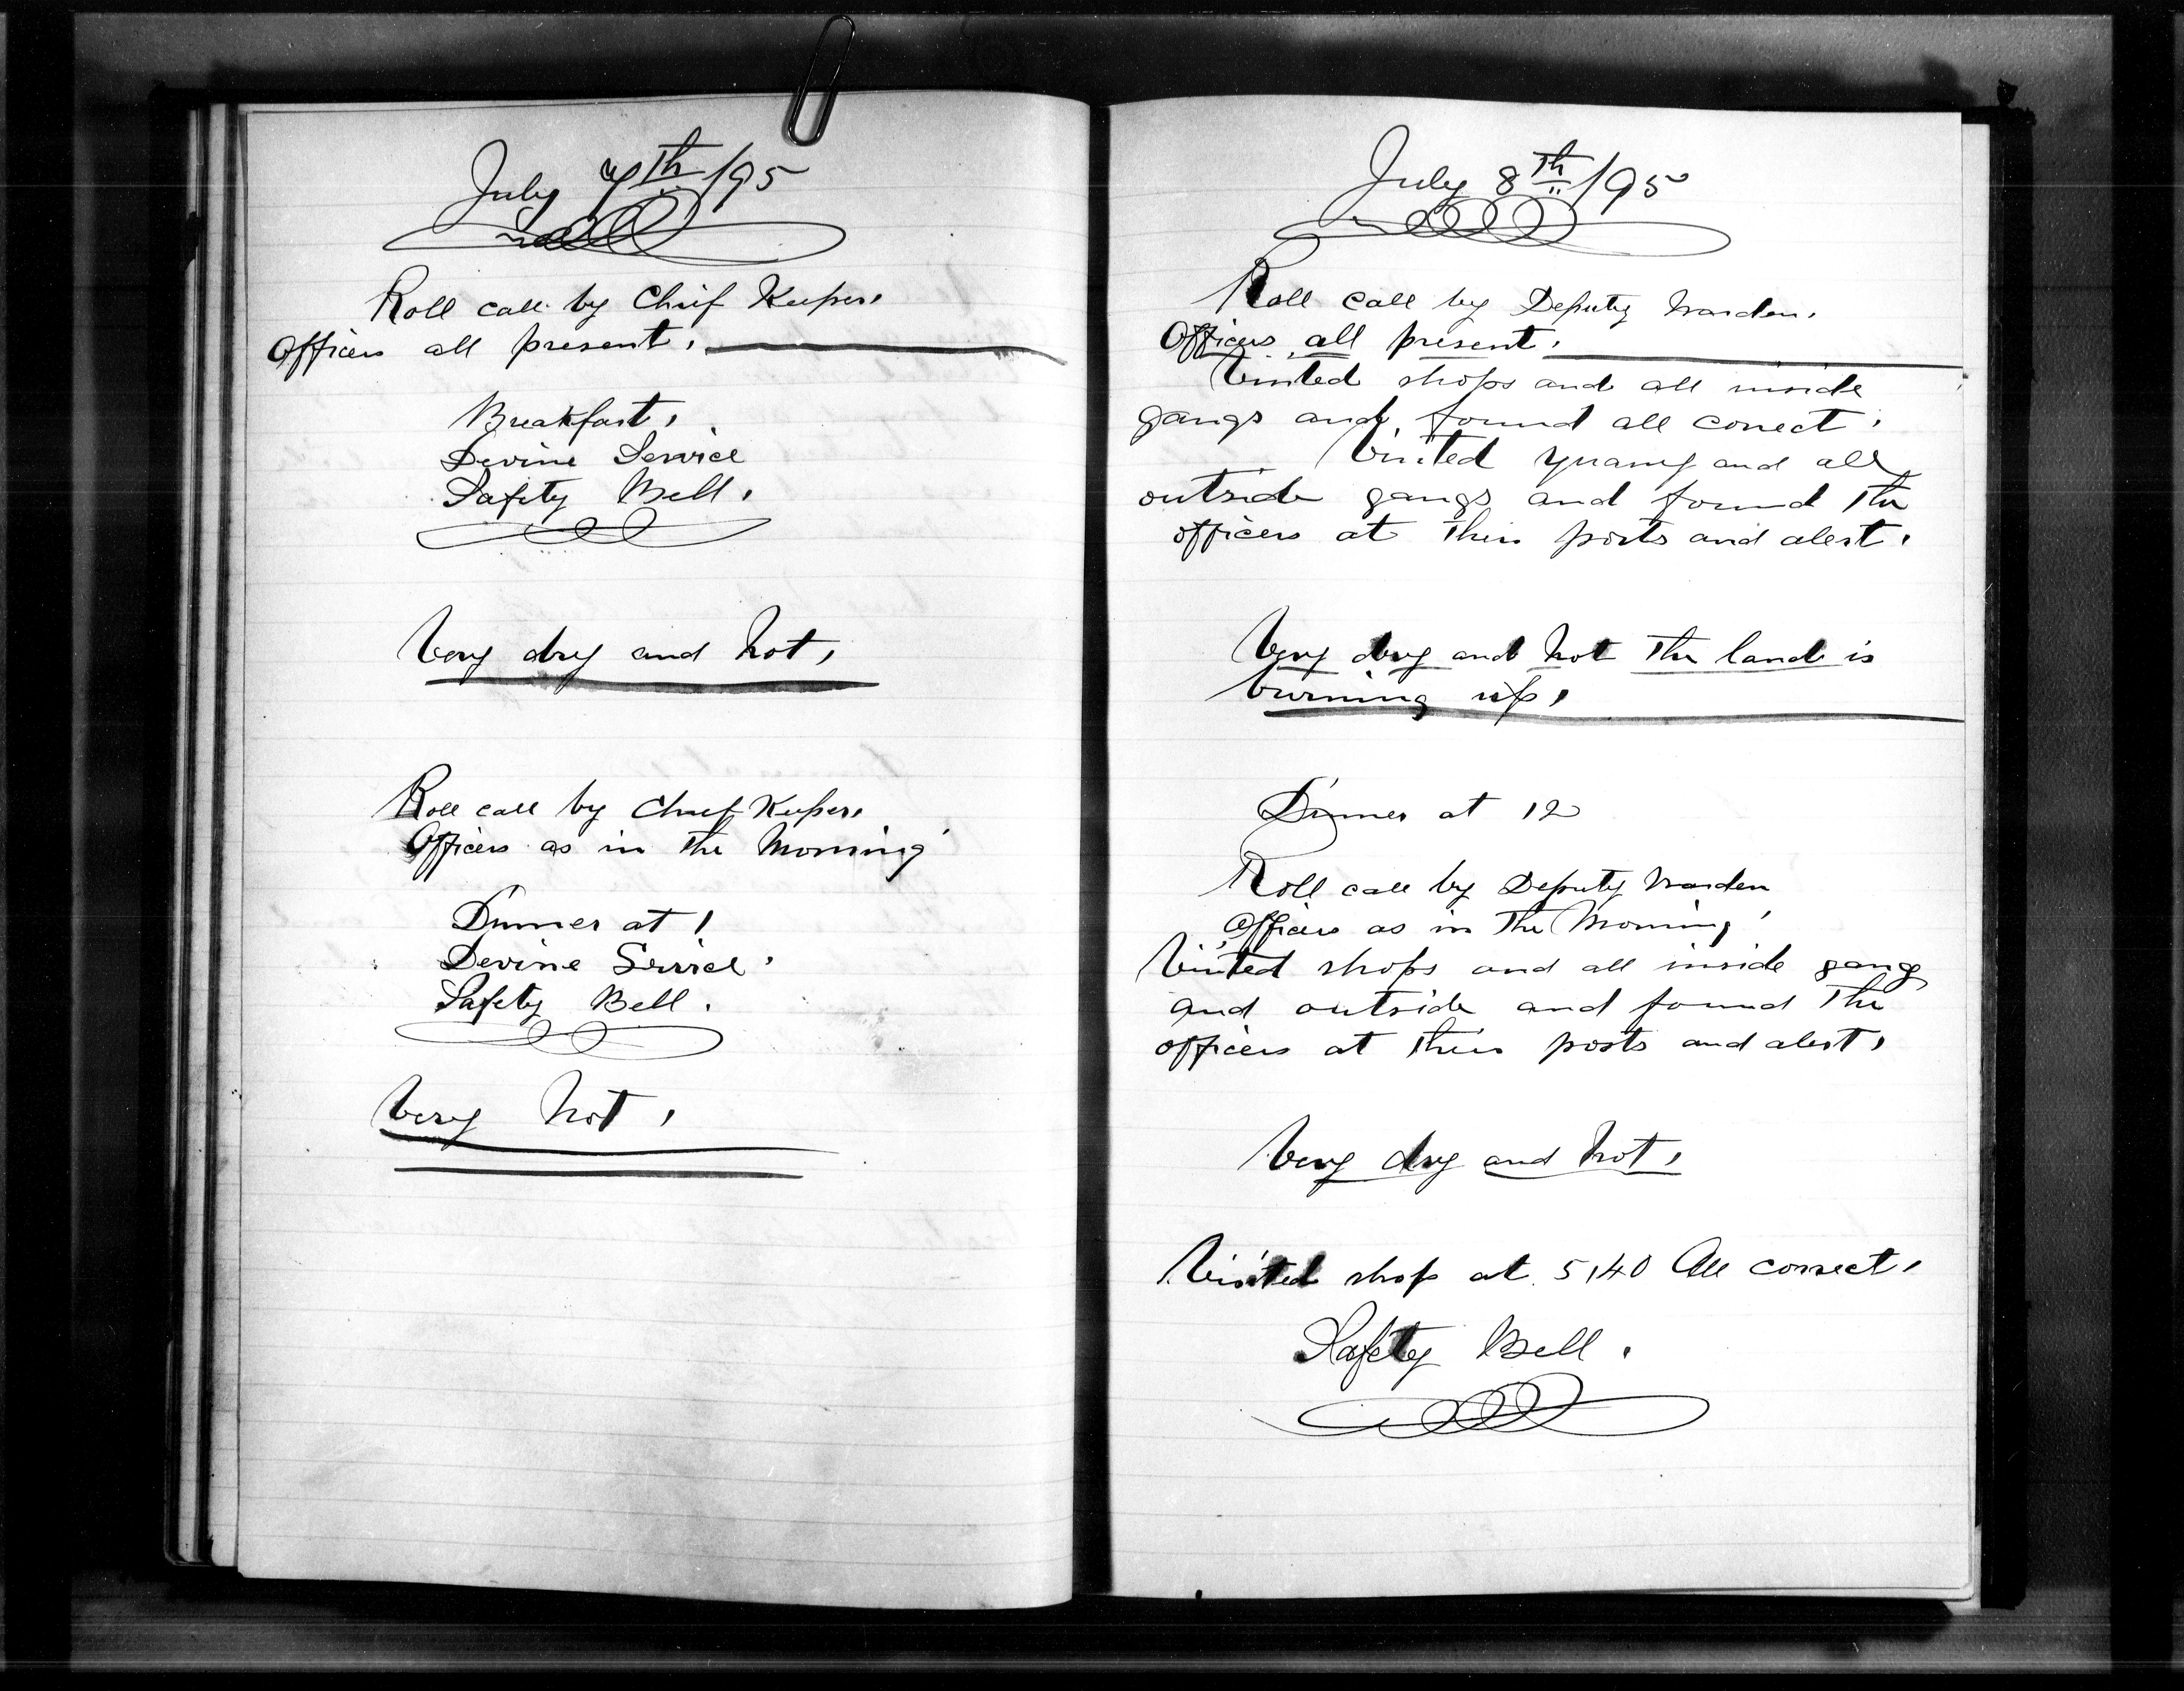 July 7th /95
Roll call by Chief Keeper.
Officers all present.
Breakfast.
Devine Service
Safety Bell.
Very dry and hot.
Roll call by Chief Keeper.
Officers as in the Morning
Dinner at 1
Devine Service.
Safety Bell.
Very hot.
July 8th /95
Roll call by Deputy Warden.
Officers all present.
Visited shops and all inside
gangs and found all correct.
Visited Quarry and all
outside gangs and found the
officers at their posts and alert.
Very dry and hot the land is
burning up.
Dinner at 12
Roll call by Deputy Warden
Officers as in the Morning
Visited shops and all inside gang
and outside and found the
officers at their posts and alert.
Very dry and hot.
Visited shop at 5,40 All correct.
Safety Bell.